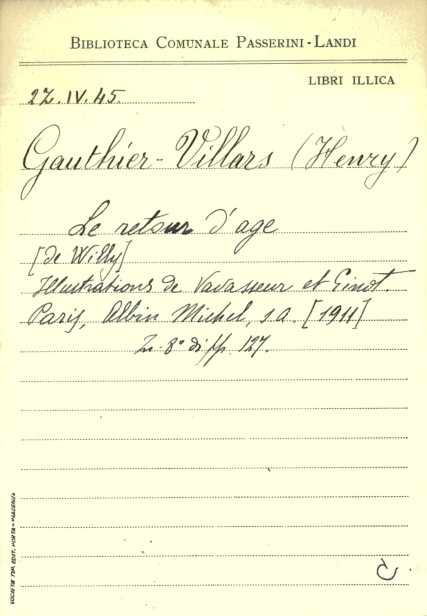 BIBLIOTECA COMUNALE PASSERINI-LANDI
LIBRI ILLICA
27.IV.45.
Gauthier-Villars (Henry)
Le retour d'age
[de Willy]
Illustrations de Vavasseur et Ginot.
Paris, Albin Michel, s.a. [1911]
In-8° di pp. 127.
SOCIETÀ TIP. EDIT. PORTA - PIACENZA